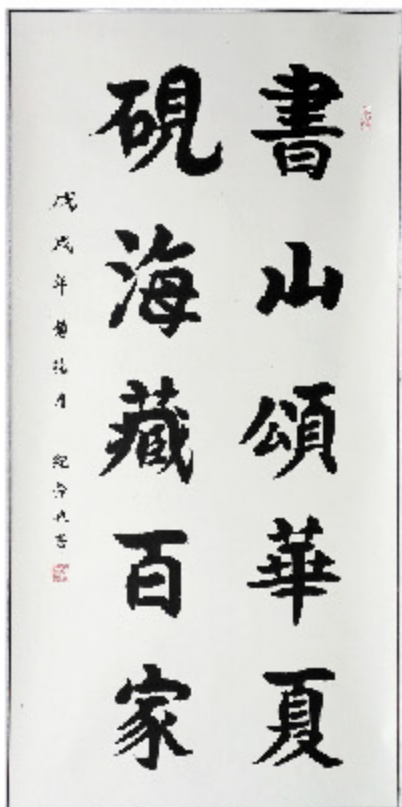 書山頌華夏
硯海藏百家
戊戌年